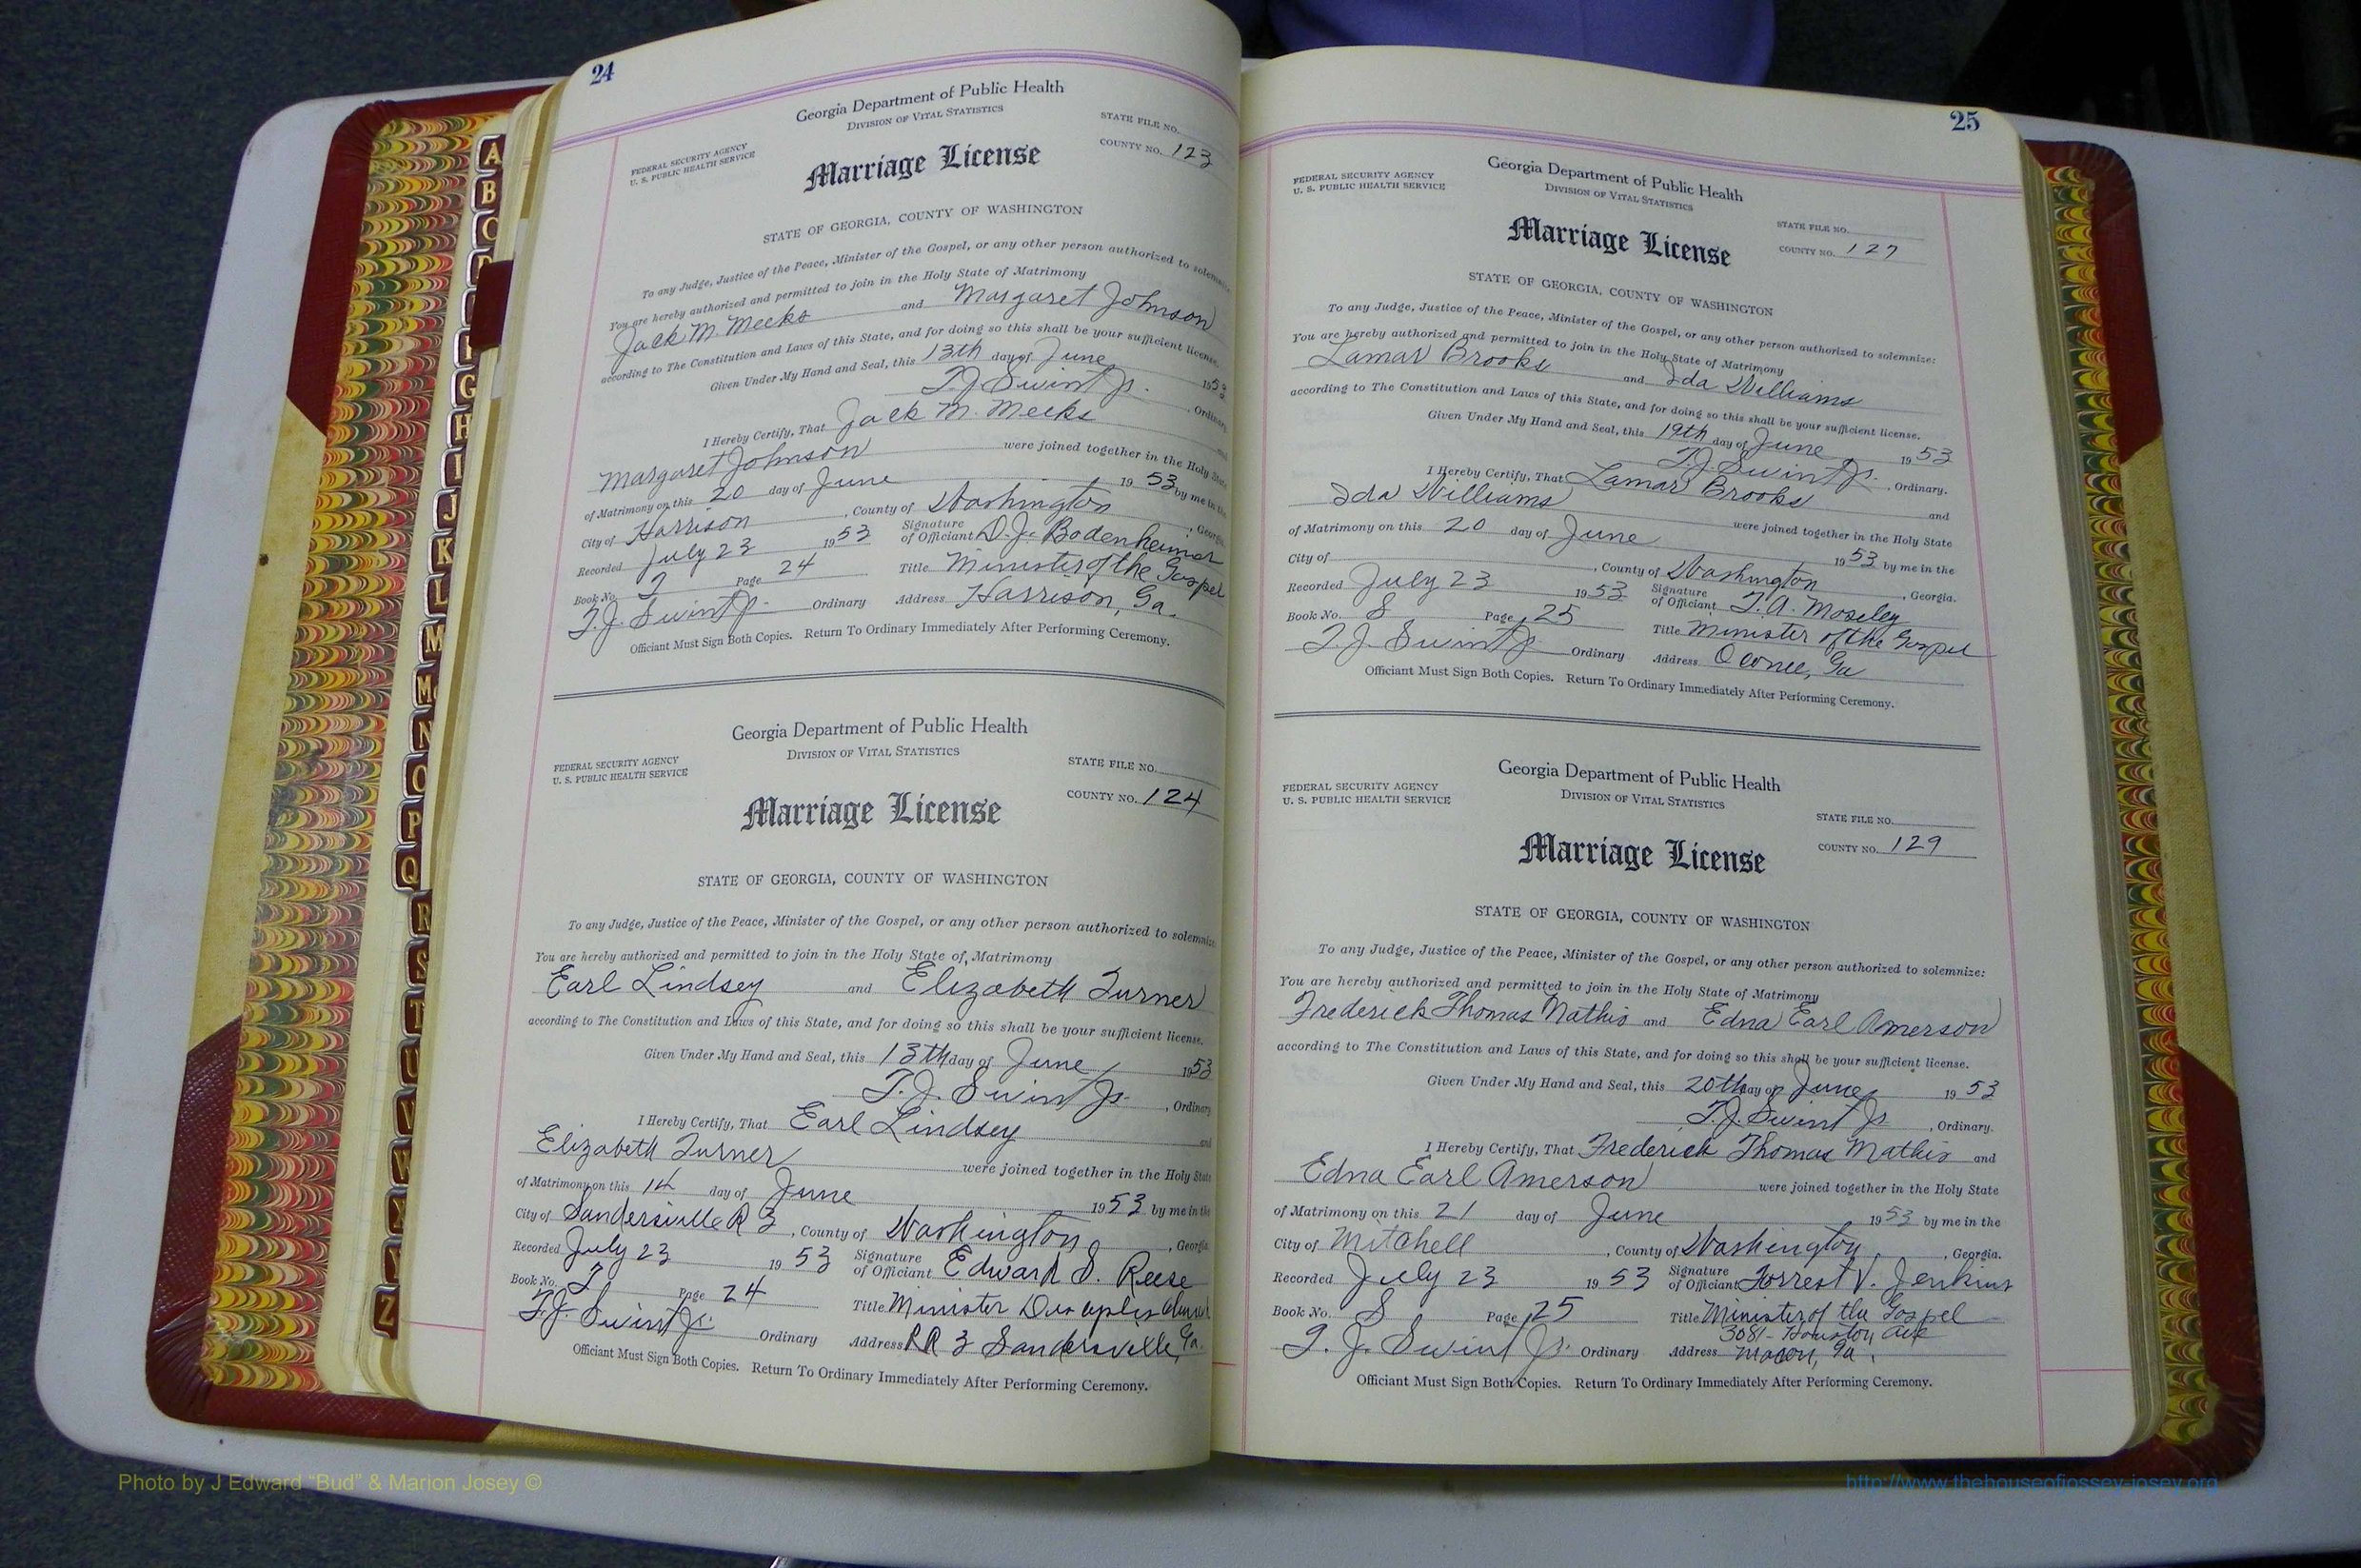 24
Georgia Department of Public Health
DIVISION OF VITAL STATISTICS
FEDERAL SECURITY AGENCY
U. S. PUBLIC HEALTH SERVICE
STATE FILE NO.
COUNTY NO. 123
Marriage License
STATE OF GEORGIA, COUNTY OF WASHINGTON
To any Judge, Justice of the Peace, Minister of the Gospel, or any other person authorized to
You are hereby authorized and permitted to join in the Holy State of Matrimony
Jack M. Meeks and Margaret Johnson
according to The Constitution and Laws of this State, and for doing so this shall be your sufficient license.
Given Under My Hand and Seal, this 13th day of June 1953
T. J. Swint Jr. , Ordinary
I Hereby Certify, That Jack M. Meeks and
Margaret Johnson were joined together in the Holy State
of Matrimony on this 20 day of June 1953 by me in the
City of Harrison , County of Washington , Georgia
Recorded July 23 1953 Signature of Officiant D. J. Bodenheimer
Book No. Page 24 Title Minister of the Gospel
T. J. Swint Jr. Ordinary Address Harrison, Ga.
Officiant Must Sign Both Copies. Return To Ordinary Immediately After Performing Ceremony.
Georgia Department of Public Health
DIVISION OF VITAL STATISTICS
FEDERAL SECURITY AGENCY
U. S. PUBLIC HEALTH SERVICE
STATE FILE NO.
COUNTY NO. 124
Marriage License
STATE OF GEORGIA, COUNTY OF WASHINGTON
To any Judge, Justice of the Peace, Minister of the Gospel, or any other person authorized to
You are hereby authorized and permitted to join in the Holy State of Matrimony
Earl Lindsey and Elizabeth Turner
according to The Constitution and Laws of this State, and for doing so this shall be your sufficient license.
Given Under My Hand and Seal, this 13th day of June 1953
T. J. Swint Jr. , Ordinary
I Hereby Certify, That Earl Lindsey and
Elizabeth Turner were joined together in the Holy State
of Matrimony on this 14 day of June 1953 by me in the
City of Sandersville R 3 , County of Washington , Georgia
Recorded July 23 1953 Signature of Officiant Edward S. Reese
Book No. Page 24 Title Minister
T. J. Swint Jr. Ordinary Address RR 3 Sandersville, Ga.
Officiant Must Sign Both Copies. Return To Ordinary Immediately After Performing Ceremony.
25
Georgia Department of Public Health
DIVISION OF VITAL STATISTICS
FEDERAL SECURITY AGENCY
U. S. PUBLIC HEALTH SERVICE
STATE FILE NO.
COUNTY NO. 127
Marriage License
STATE OF GEORGIA, COUNTY OF WASHINGTON
To any Judge, Justice of the Peace, Minister of the Gospel, or any other person authorized to solemnize:
You are hereby authorized and permitted to join in the Holy State of Matrimony
Lamar Brooks and Ida Williams
according to The Constitution and Laws of this State, and for doing so this shall be your sufficient license.
Given Under My Hand and Seal, this 19th day of June 1953
T. J. Swint Jr. , Ordinary.
I Hereby Certify, That Lamar Brooks and
Ida Williams were joined together in the Holy State
of Matrimony on this 20 day of June 1953 by me in the
City of , County of Washington , Georgia.
Recorded July 23 1953 Signature of Officiant T. A. Moseley
Book No. S Page 25 Title Minister of the Gospel
T. J. Swint Jr. Ordinary Address Oconee, Ga
Officiant Must Sign Both Copies. Return To Ordinary Immediately After Performing Ceremony.
Georgia Department of Public Health
DIVISION OF VITAL STATISTICS
FEDERAL SECURITY AGENCY
U. S. PUBLIC HEALTH SERVICE
STATE FILE NO.
COUNTY NO. 129
Marriage License
STATE OF GEORGIA, COUNTY OF WASHINGTON
To any Judge, Justice of the Peace, Minister of the Gospel, or any other person authorized to solemnize:
You are hereby authorized and permitted to join in the Holy State of Matrimony
Frederick Thomas Mathis and Edna Earl Amerson
according to The Constitution and Laws of this State, and for doing so this shall be your sufficient license.
Given Under My Hand and Seal, this 20th day of June 1953
T. J. Swint Jr , Ordinary.
I Hereby Certify, That Frederick Thomas Mathis and
Edna Earl Amerson were joined together in the Holy State
of Matrimony on this 21 day of June 1953 by me in the
City of Mitchell , County of Washington , Georgia.
Recorded July 23 1953 Signature of Officiant Forrest V. Jenkins
Book No. S Page 25 Title Minister of the Gospel
3081- Houston Ave
T. J. Swint Jr. Ordinary Address Macon, Ga.
Officiant Must Sign Both Copies. Return To Ordinary Immediately After Performing Ceremony.
A
B
C
G
H
I
J
K
L
M
Mc
N
O
P
Q
R
S
T
U
V
W
Z
Photo by J Edward "Bud" & Marion Josey ©
http://www.thehouseofjossey-josey.org